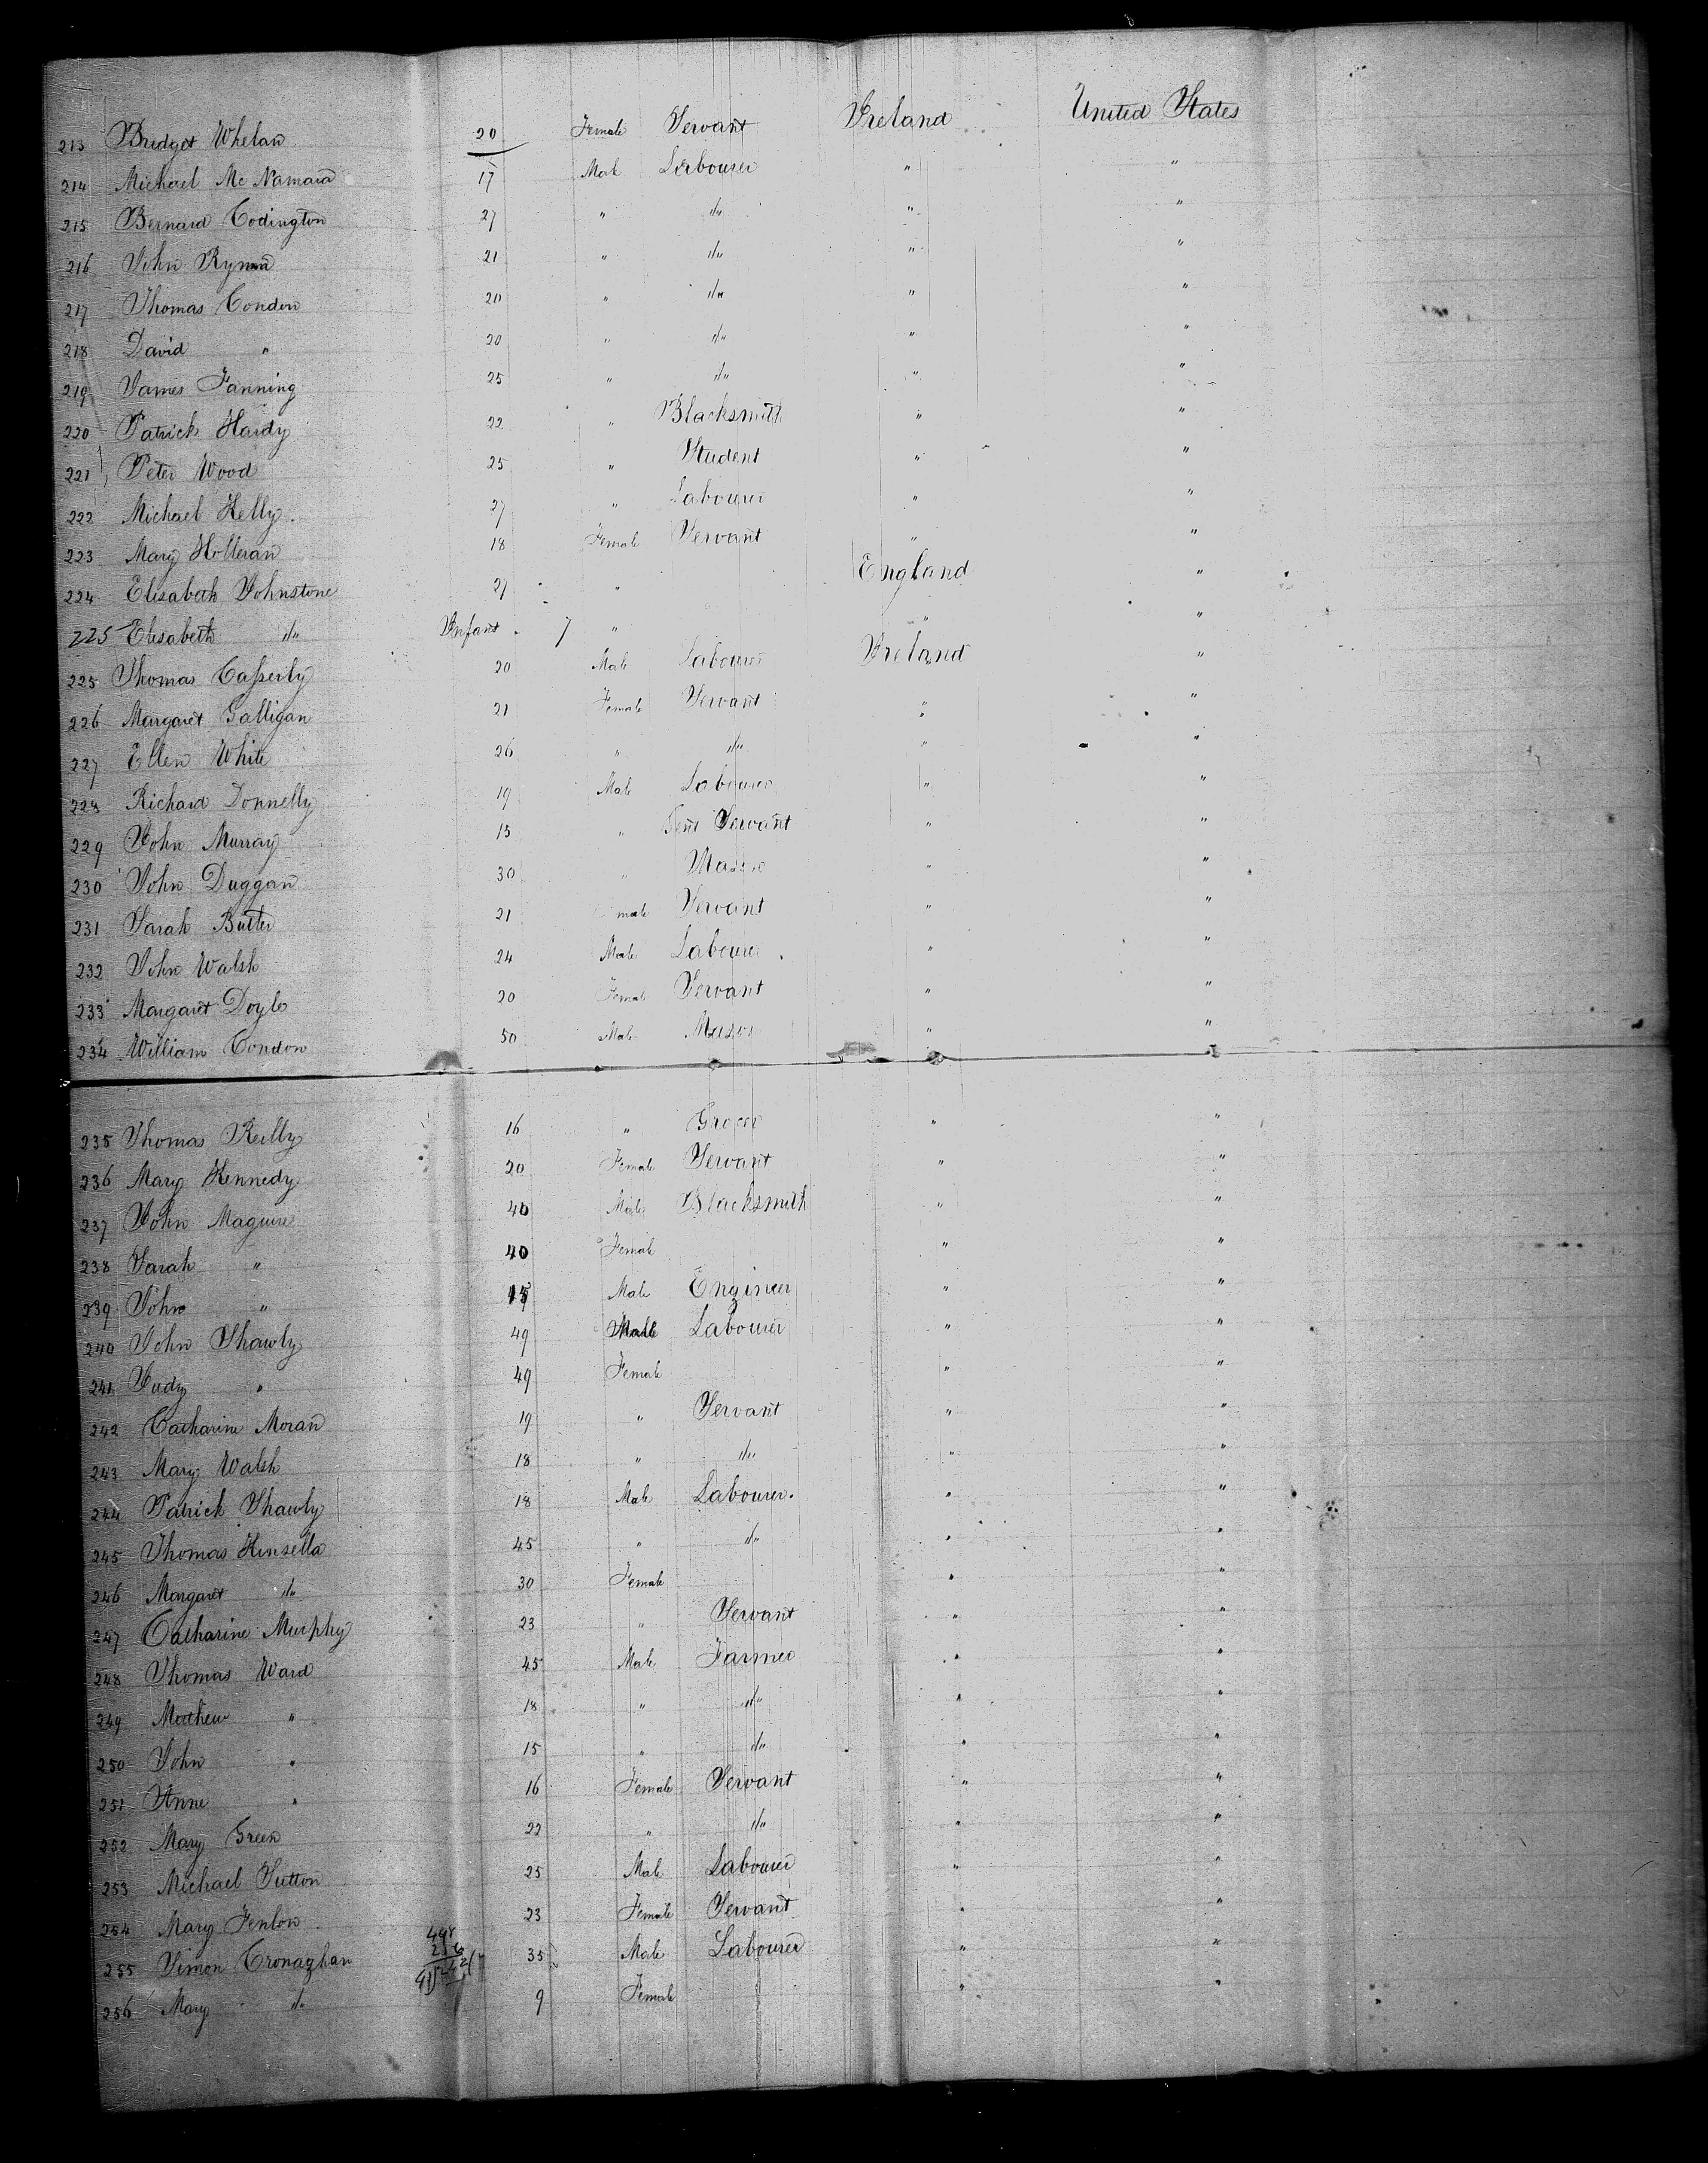 213 Bridget Whelan 20 Female Servant Ireland United States
214 Michael Mc Namara 17 Male Labourer " "
215 Bernard Codington 27 " d/o " "
216 John Rynn 21 " d/o " "
217 Thomas Condon 20 " d/o " "
218 David " 20 " d/o " "
219 James Fanning 25 " d/o " "
220 Patrick Hardy 22 " Blacksmith " "
221 Peter Wood 25 " Student " "
222 Michael Kelly. 27 " Labourer " "
223 Mary Holleran 18 Female Servant " "
224 Elisabeth Johnstone 27 " England "
225 Elisabeth d/o Infant " " "
225 Thomas Casserly 20 Male Labourer Ireland "
226 Margaret Galligan 21 Female Servant " "
227 Ellen White 26 " d/o " "
228 Richard Donnelly 19 Male Labourer " "
229 John Murray 13 " Servant " "
230 John Duggan 30 " Mason " "
231 Sarah Butler 21 Female Servant " "
232 John Walsh 24 Male Labourer " "
233 Margaret Doyle 20 Female Servant " "
234 William Condon 50 Male Mason " "
235 Thomas Reilly 16 " Grocer " "
236 Mary Kennedy 20 Female Servant " "
237 John Maguire 40 Male Blacksmith " "
238 Sarah " 40 Female " "
239 John " 15 Male Engineer " "
240 John Shawly 49 Male Labourer " "
241 Judy " 49 Female " "
242 Catharine Moran 19 " Servant " "
243 Mary Walsh 18 " d/o " "
244 Patrick Shawly 18 Male Labourer. " "
245 Thomas Kinsella 45 " d/o " "
246 Margaret d/o 30 Female " "
247 Catharine Murphy 23 " Servant " "
248 Thomas Ward 45 Male Farmer " "
249 Matthew " 18 " d/o " "
250 John " 15 " d/o " "
251 Anne " 16 Female Servant " "
252 Mary Green 22 " d/o " "
253 Michael Sutton 25 Male Labourer " "
254 Mary Fenlon 23 Female Servant " "
255 Simon Cronaghan 35 Male Labourer " "
256 Mary d/o 9 Female " "